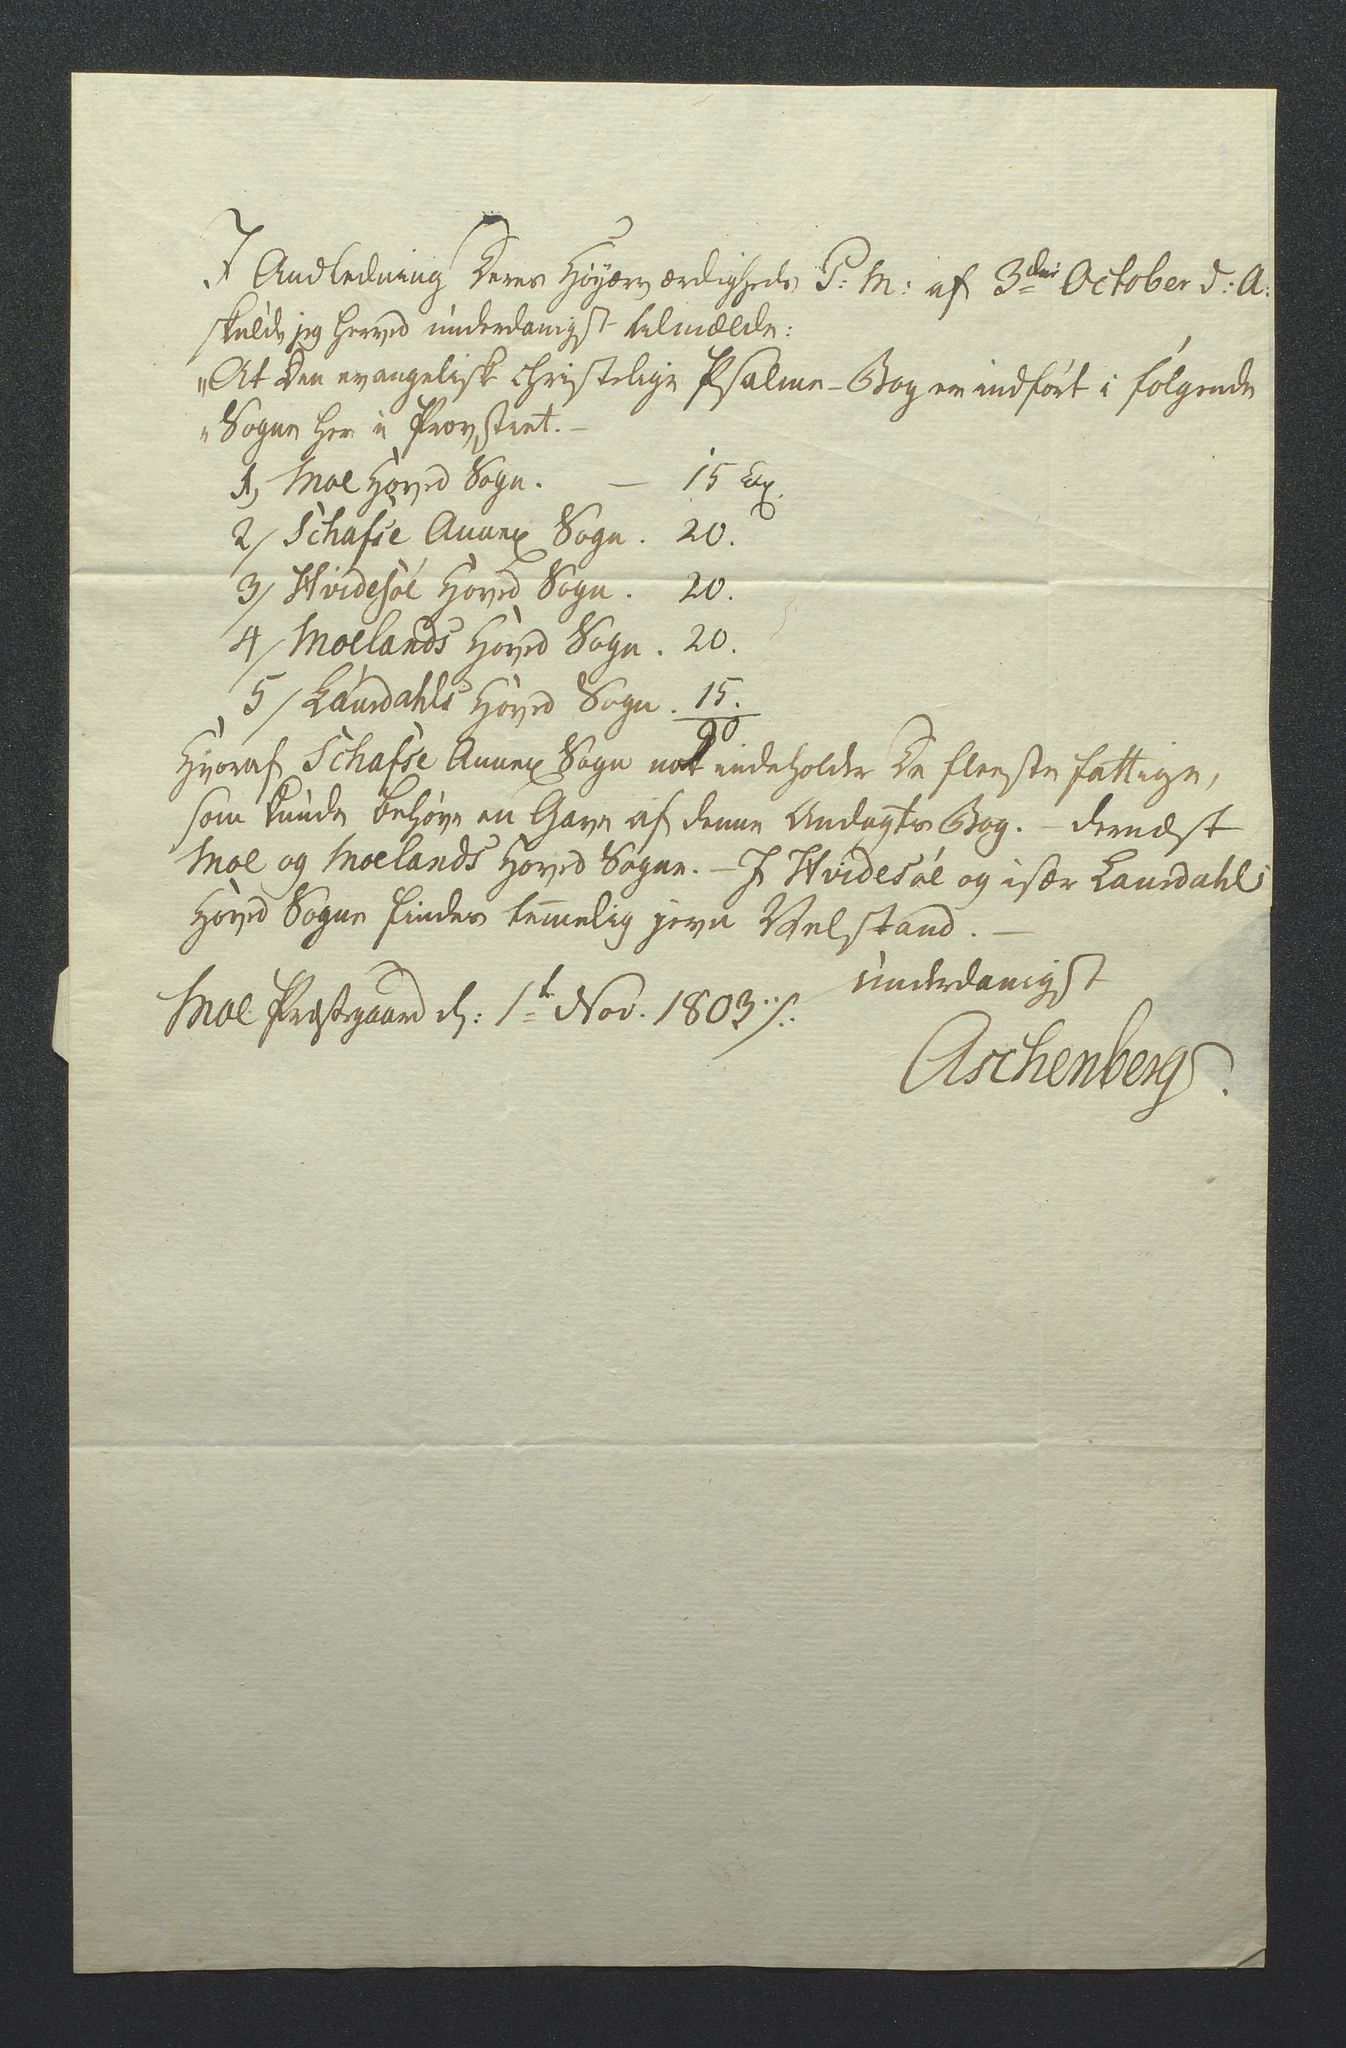 I Andledning Deres Høyærværdigheds P: M: af 3die October d: A:
skulde jeg herved underdanigst tilmælde:
"At Den evangelisk christelige Psalme-Bog er indført i følgende
"Sogne her i Provstiet. –
1, Moe Hoved Sogn. – 15 Exp.
2/ Schafse Annex Sogn. 20.
3/ Hvidesöe Hoved Sogn. 20.
4/ Moelands Hoved Sogn. 20.
5/ Laurdahls Hoved Sogn. 15.
90
Hvoraf Schafse Annex Sogn nok indeholder De fleeste fattige,
som kunde behøve en Gave af denne Andagts Bog. – dernæst
Moe og Moelands Hoved Sogne. – I Hvidesöe og især Laurdahls
Hoved Sogne findes temmelig jevn Velstand. –
underdanigst
Moe Præstegaard d: 1te Nov. 1803 ./.
Aschenberg.